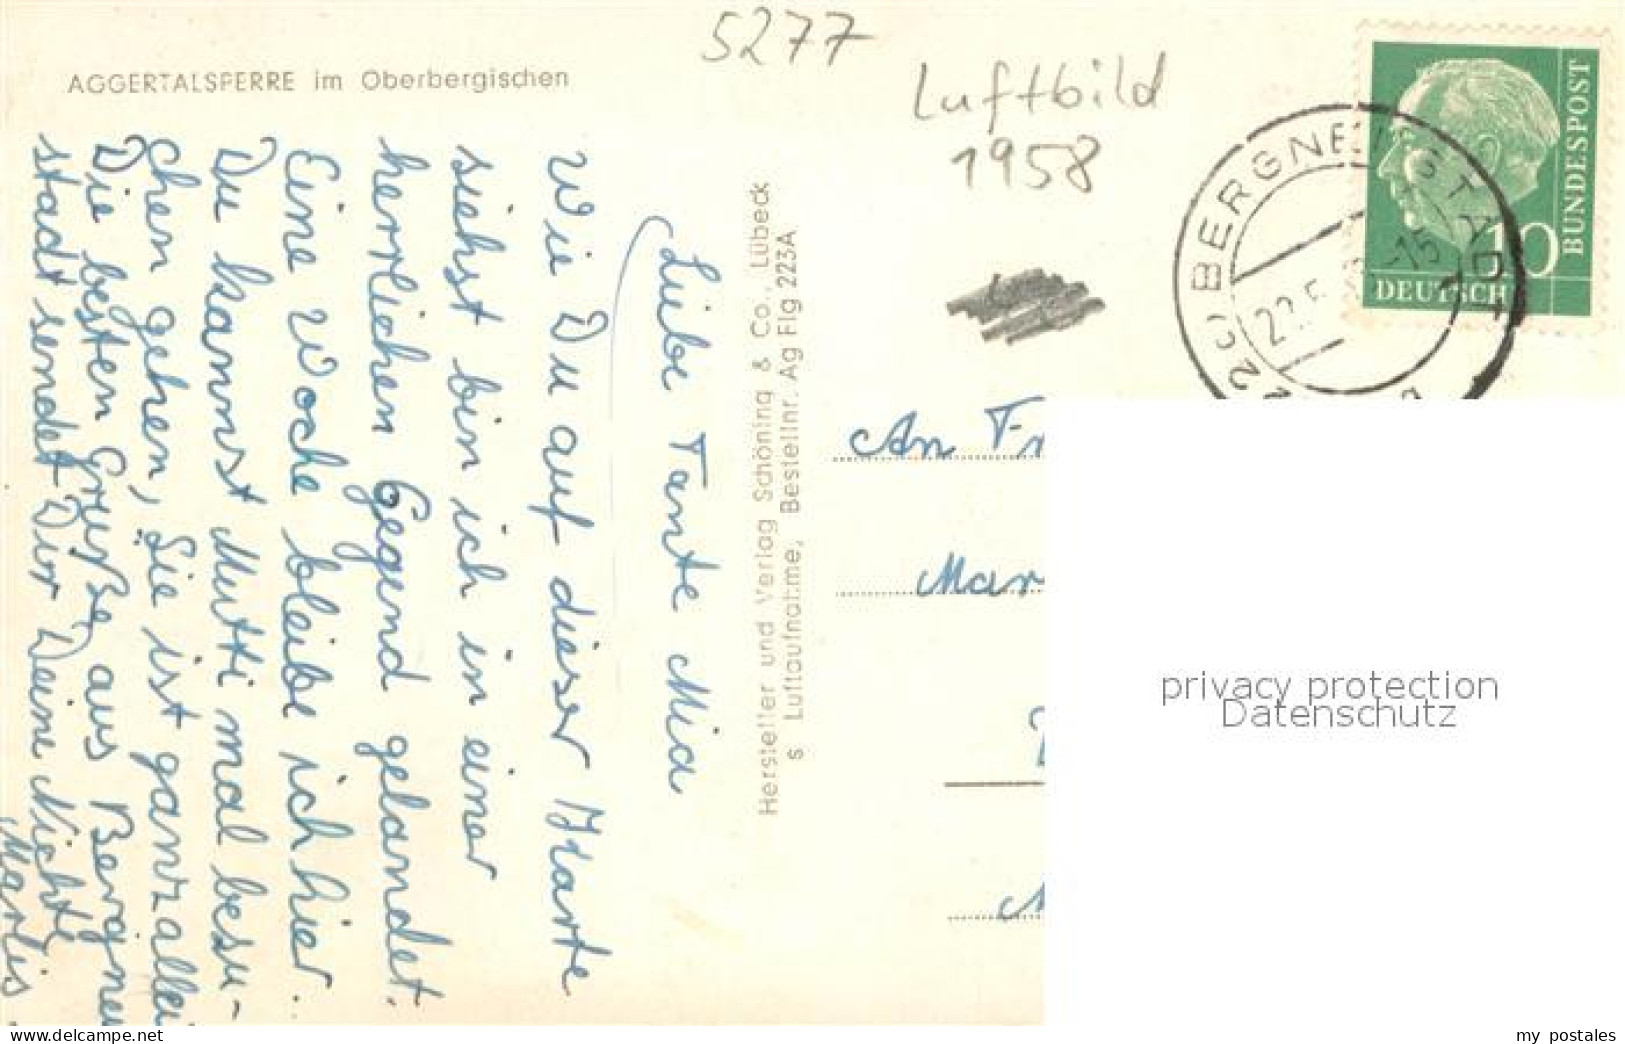 5277
AGGERTALSPERRE im Oberbergischen
Luftbild
1958
BUNDESPOST
10
DEUTSCH
(22c) BERGNEUSTADT
22.5
-15
Liebe Tante Mia
Wie Du auf dieser Karte
siehst bin ich in einer
herrlichen Gegend gelandet.
Eine Woche bleibe ich hier.
Du kannst Mutti mal besu-
chen gehen, Sie ist ganz allei
Die besten Grüße aus Bergneu
stadt sendet Dir Deine Nichte
Marlis
Hersteller und Verlag Schöning & Co., Lübeck
s Luftaufnahme, Bestellnr. Ag Flg 223A
An Fr
Mar
privacy protection
Datenschutz
www.delcampe.net
my postales